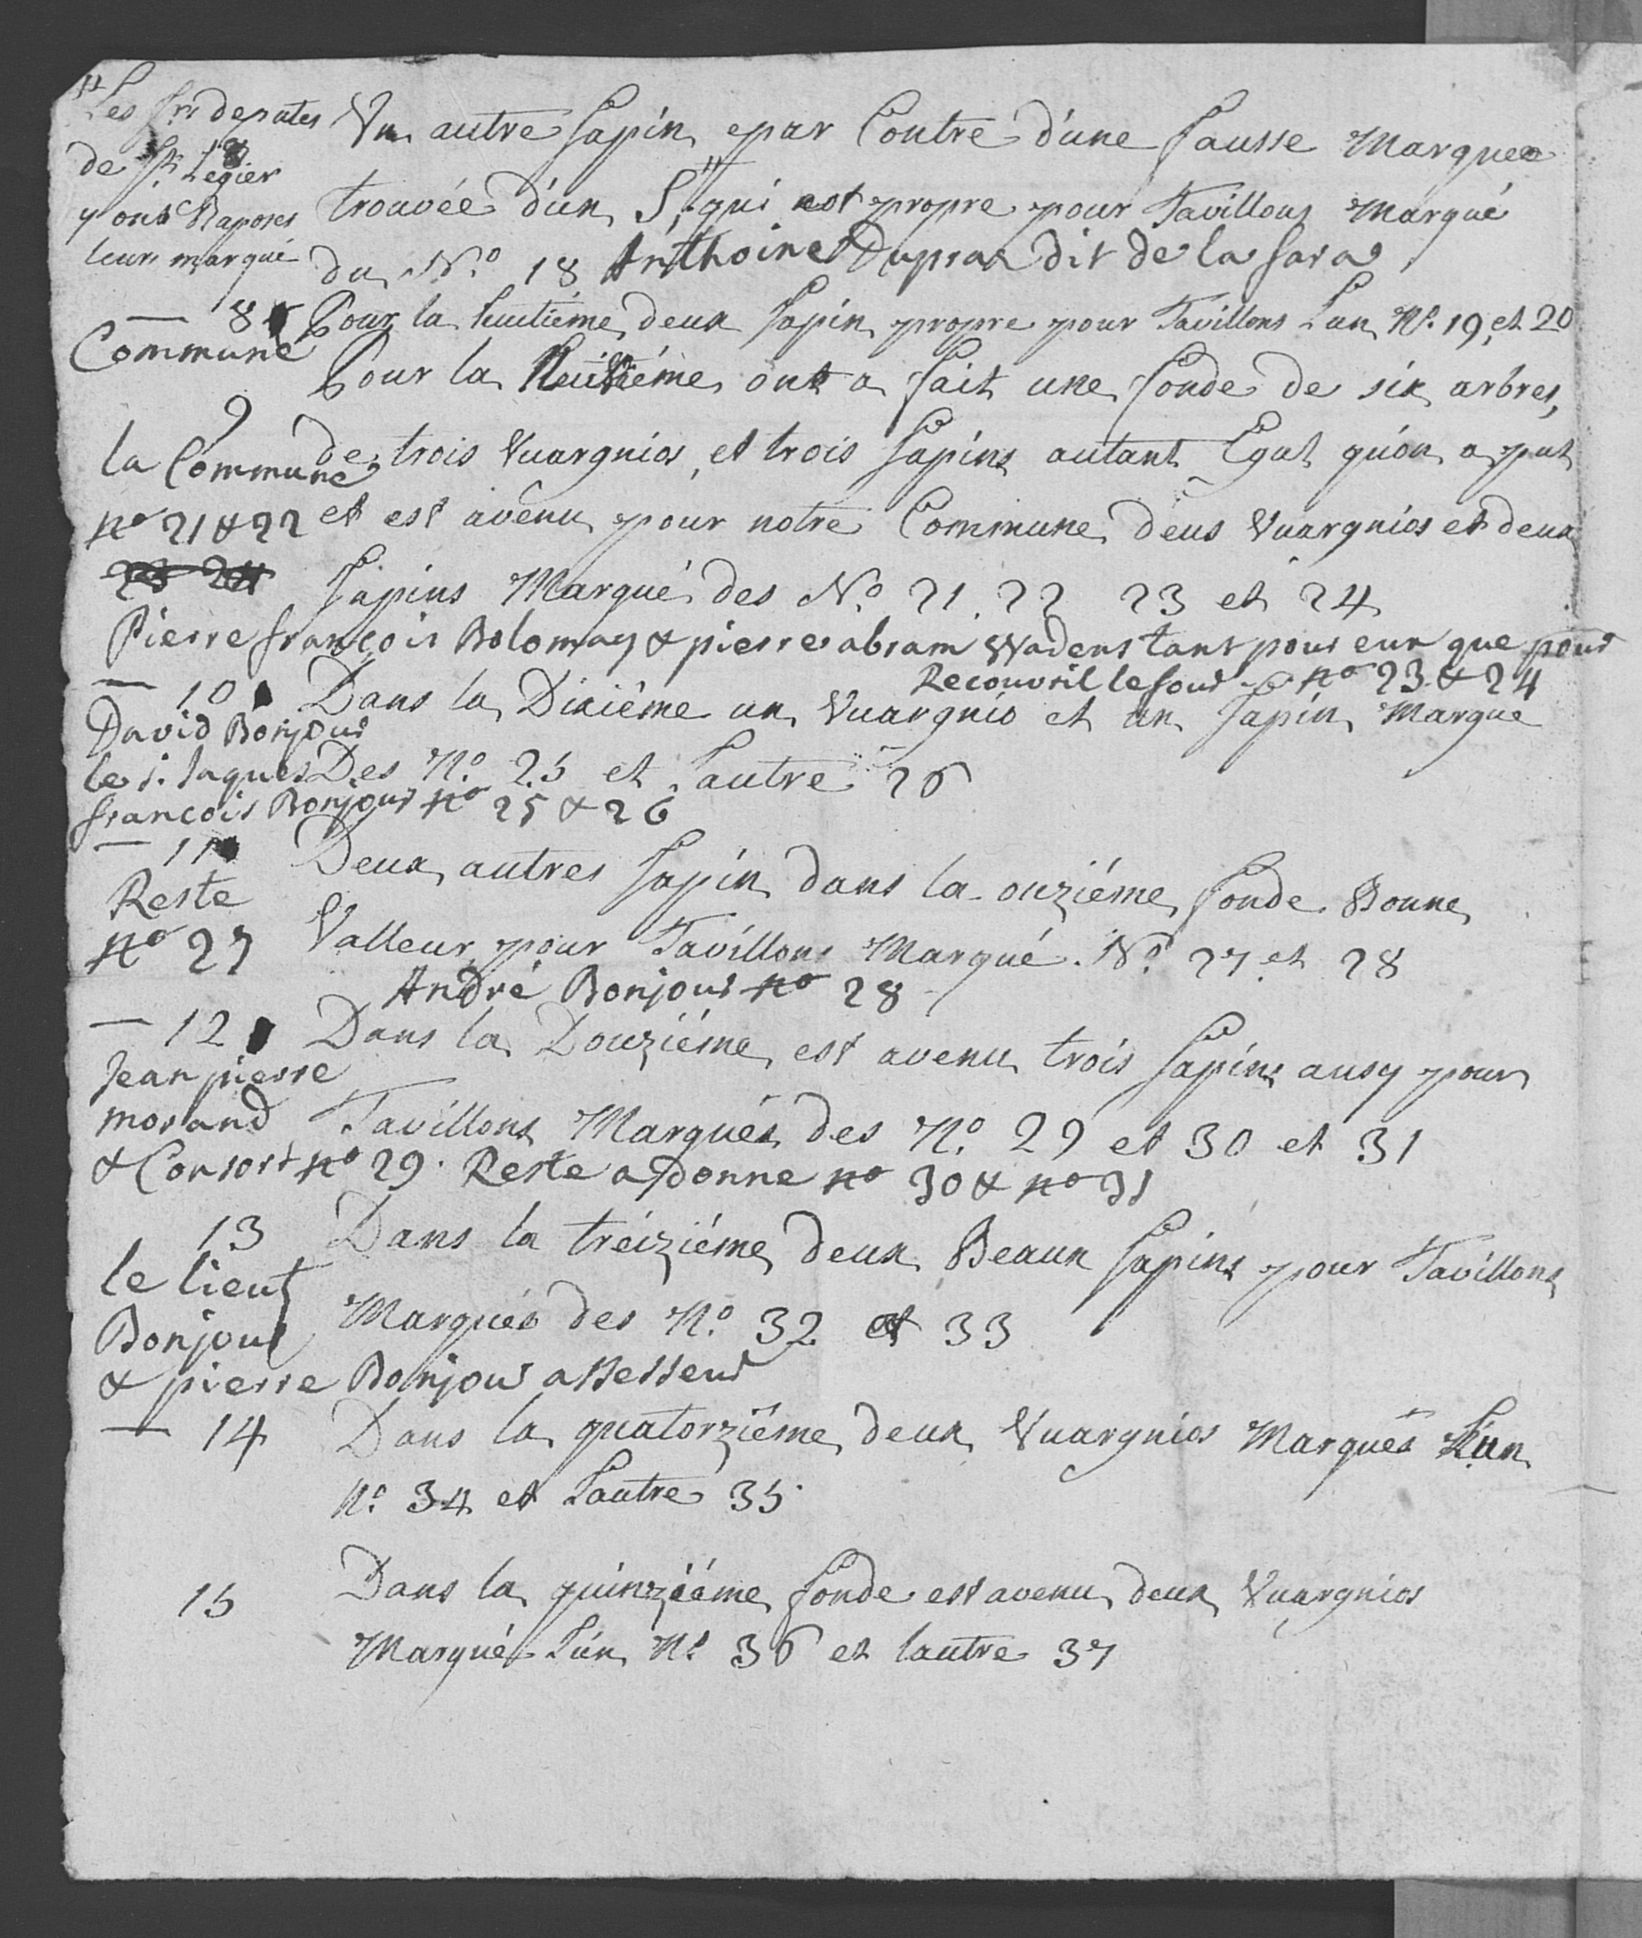 Les Srs deputes
de St Legier
y ont Raposes
leur marque
Un autre Sapin epar Contre d'une fausse Marque
trouvée d'un S, qui est propre pour Tavillons Marqué
du No. 18 Anthoine Dupraz dit de la sara
— 8
Commune
Pour la huitiéme deux Sapin propre pour Tavillons L'un No. 19 et 20
Pour la Neuviéme ont a fait une sonde de six arbres,
9
la Commune
no 21 & 22
de trois Vuargnios et trois Sapins autant Egal qu'on a put
et est avenu pour notre Commune deus Vuargnios et deux
23 24
Sapins Marqué des No. 21. 22 23 et 24
Pierre françois Bolomay & pierre abram Wadens tant pour eux que pour
Recouvril le four no 23 & 24
— 10
David Bonjour
le s. Jaques
françois Bonjour no 25 & 26
Dans la Dixiéme un Vuargnio et un Sapin Marqué
Des No. 25 et L'autre 26
— 11
Reste
no 27
Deux autres Sapin dans la onziéme sonde Bonne
Valleur pour Tavillons Marqué No. 27 et 28
André Bonjour no 28
— 12
Jean pierre
morand
& Consort no 29. Reste a donne no 30 & no 31
Dans la Douziéme est avenu trois Sapins ausy pour
Tavillons Marqués des No. 29 et 30 et 31
13
le lieut
Bonjour
& pierre Bonjour assesseur
Dans la treiziéme deux Beaux Sapins pour Tavillons
Marqués des No. 32 et 33
— 14
Dans la quatorziéme deux Vuargnios Marqués L'un
No. 34 et L'autre 35
15
Dans la quinziéme sonde est avenu deux Vuargnios
Marqué L'un No. 36 et lautre 37